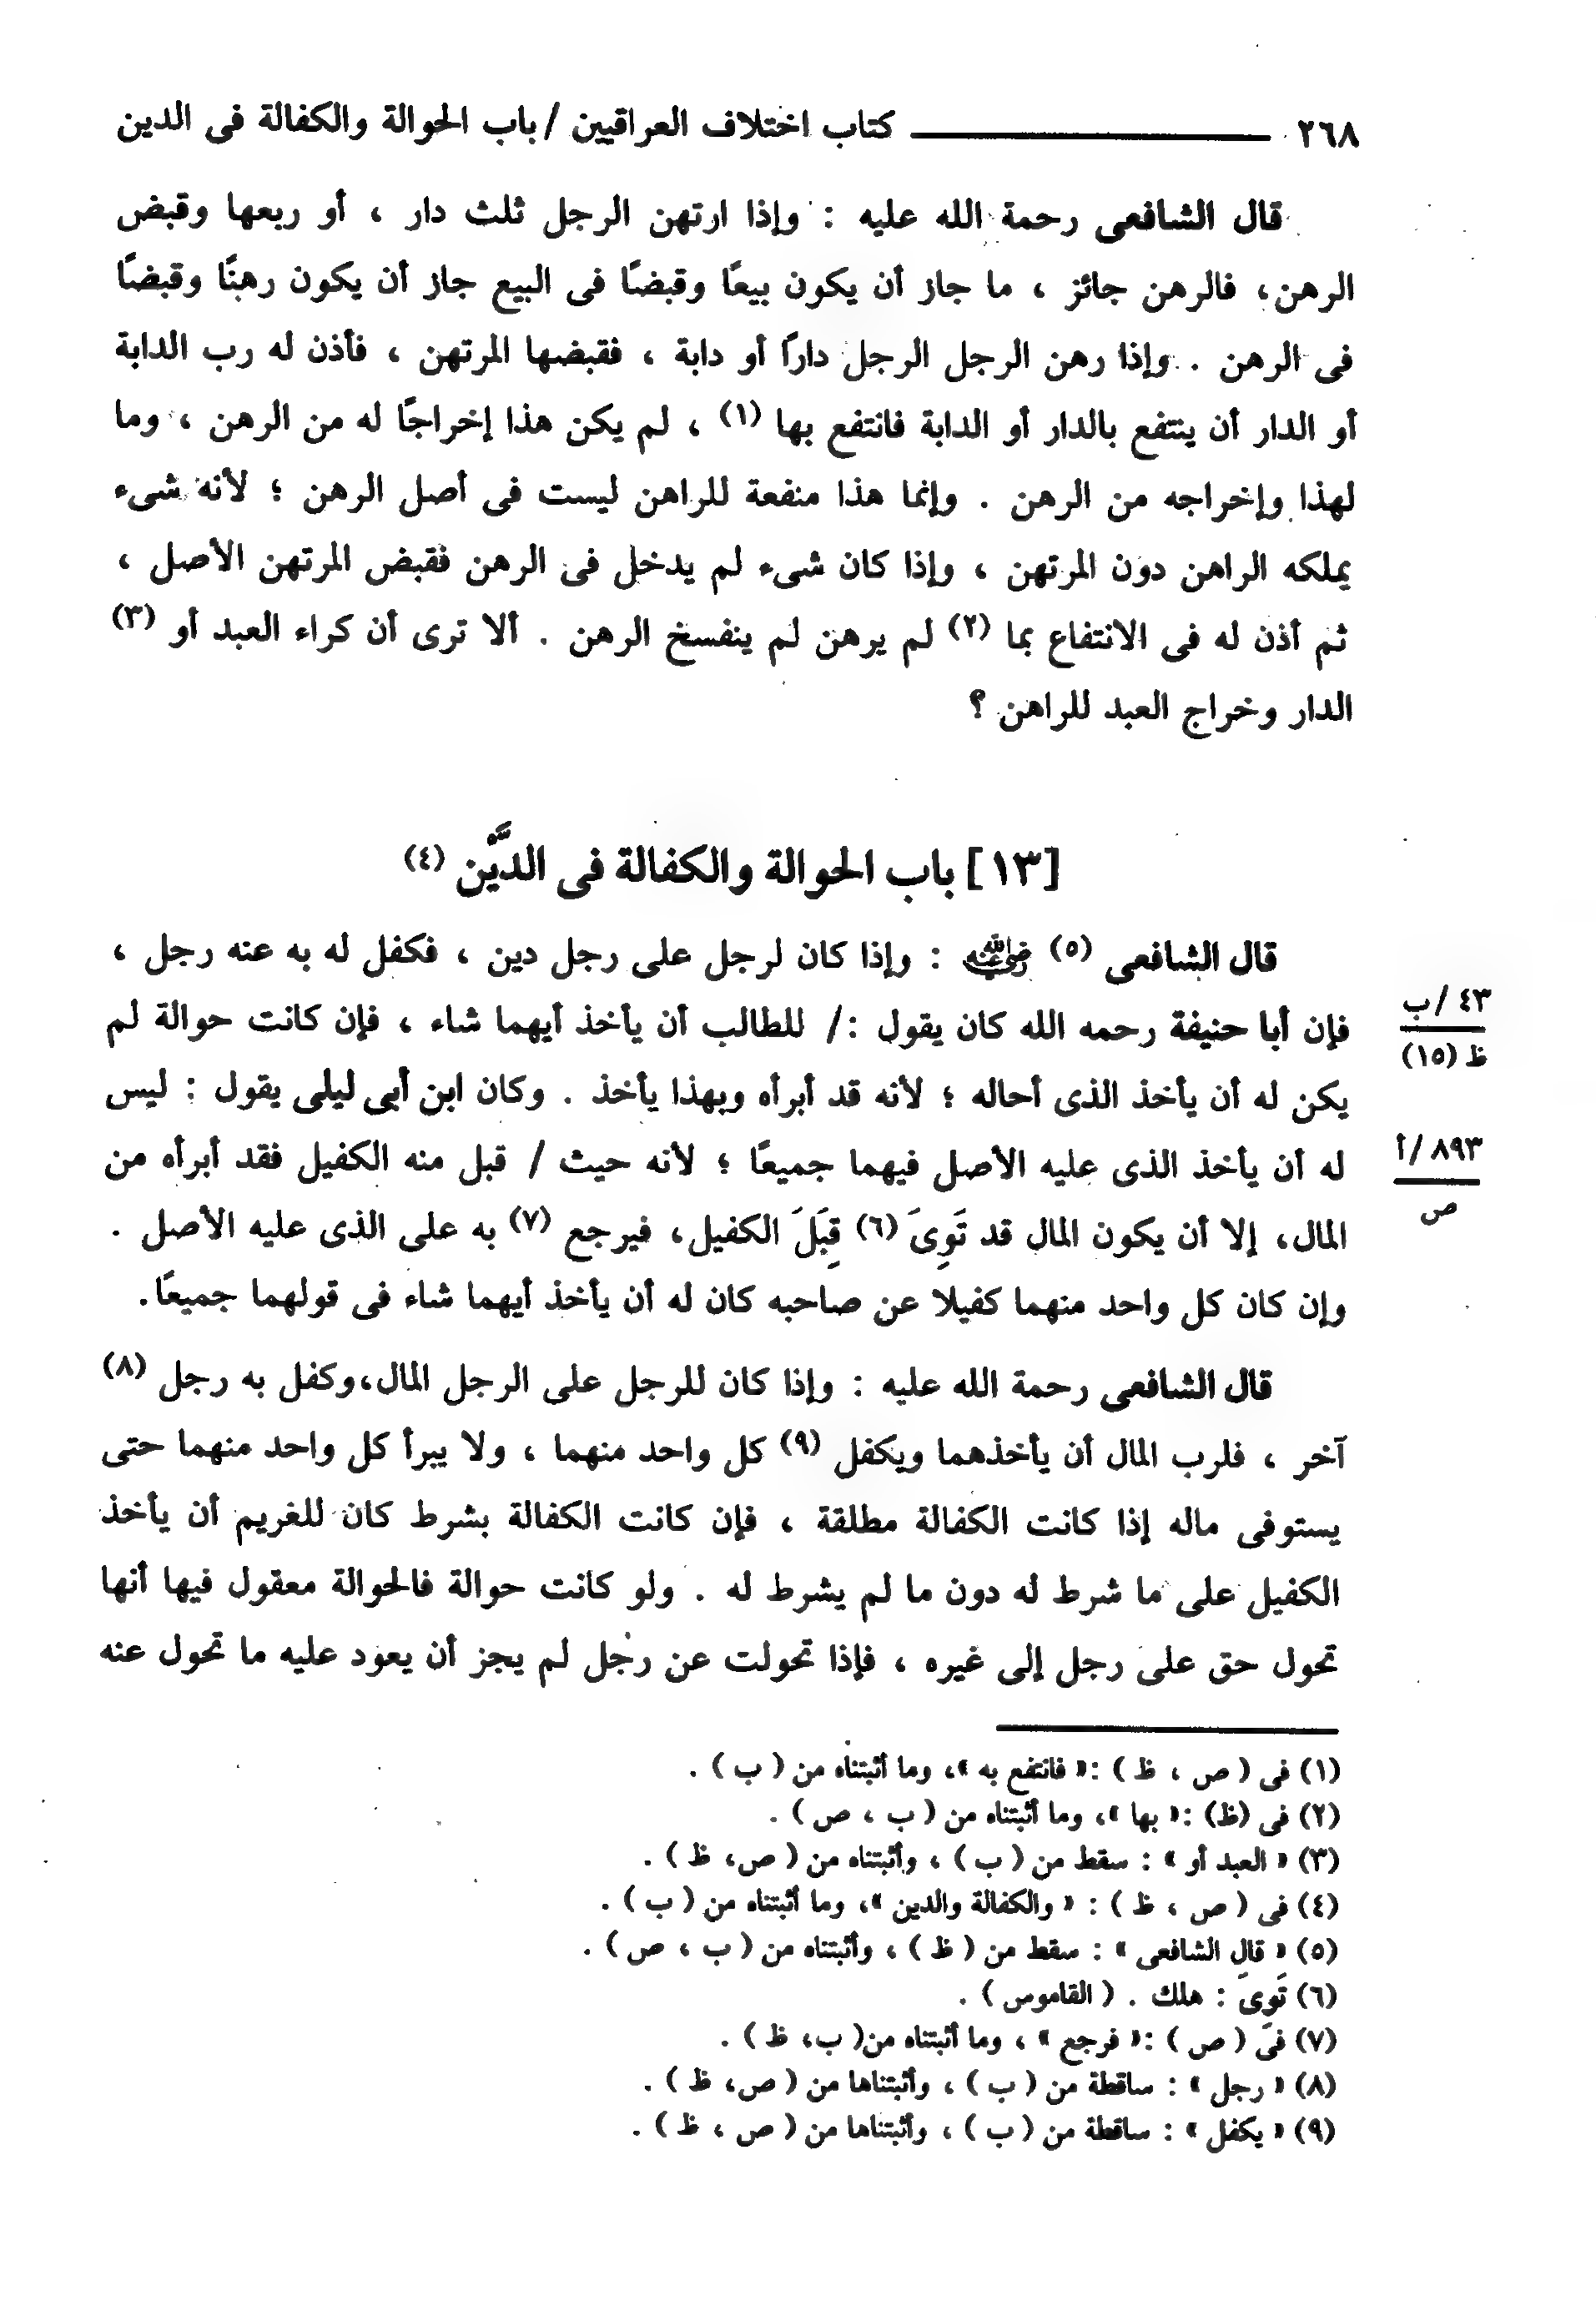 ٢٦٨ كتاب اختلاف العراقيين / باب الحوالة والكفالة فى الدين
قال الشافعى رحمة الله عليه : وإذا ارتهن الرجل ثلث دار ، أو ربعها وقبض
الرهن، فالرهن جائز ، ما جاز أن يكون بيعًا وقبضًا فى البيع جاز أن يكون رهنًا وقبضًا
فى الرهن . وإذا رهن الرجل الرجل دارًا أو دابة ، فقبضها المرتهن ، فأذن له رب الدابة
أو الدار أن ينتفع بالدار أو الدابة فانتفع بها (١) ، لم يكن هذا إخراجًا له من الرهن ، وما
لهذا وإخراجه من الرهن . وإنما هذا منفعة للراهن ليست فى أصل الرهن ؛ لأنه شىء
يملكه الراهن دون المرتهن ، وإذا كان شىء لم يدخل فى الرهن فقبض المرتهن الأصل ،
ثم أذن له فى الانتفاع بما (٢) لم يرهن لم ينفسخ الرهن . ألا ترى أن كراء العبد أو (٣)
الدار وخراج العبد للراهن ؟
[١٣] باب الحوالة والكفالة فى الدَّيْن (٤)
قال الشافعى (٥) رضي الله عنه : وإذا كان لرجل على رجل دين ، فكفل له به عنه رجل ،
فإن أبا حنيفة رحمه الله كان يقول :/ للطالب أن يأخذ أيهما شاء ، فإن كانت حوالة لم
٤٣ /ب
ظ (١٥)
يكن له أن يأخذ الذى أحاله ؛ لأنه قد أبرأه وبهذا يأخذ . وكان ابن أبى ليلى يقول : ليس
له أن يأخذ الذى عليه الأصل فيهما جميعًا ؛ لأنه حيث / قبل منه الكفيل فقد أبرأه من
٨٩٣ /أ
ص
المال، إلا أن يكون المال قد تَوِىَ (٦) قِبَلَ الكفيل، فيرجع (٧) به على الذى عليه الأصل .
وإن كان كل واحد منهما كفيلا عن صاحبه كان له أن يأخذ أيهما شاء فى قولهما جميعًا.
قال الشافعى رحمة الله عليه : وإذا كان للرجل على الرجل المال،وكفل به رجل (٨)
آخر ، فلرب المال أن يأخذهما ويكفل (٩) كل واحد منهما ، ولا يبرأ كل واحد منهما حتى
يستوفى ماله إذا كانت الكفالة مطلقة ، فإن كانت الكفالة بشرط كان للغريم أن يأخذ
الكفيل على ما شرط له دون ما لم يشرط له . ولو كانت حوالة فالحوالة معقول فيها أنها
تحول حق على رجل إلى غيره ، فإذا تحولت عن رجل لم يجز أن يعود عليه ما تحول عنه
(١) فى ( ص ، ظ ) :« فانتفع به »، وما أثبتناه من ( ب ) .
(٢) فى (ظ) :« بها »، وما أثبتناه من ( ب ، ص ) .
(٣) « العبد أو » : سقط من ( ب ) ، وأثبتناه من ( ص، ظ ) .
(٤) فى ( ص ، ظ ) : « والكفالة والدين »، وما أثبتناه من ( ب ) .
(٥) « قال الشافعى » : سقط من ( ظ ) ، وأثبتناه من ( ب ، ص ) .
(٦) تَوِىَ : هلك . ( القاموس ) .
(٧) فى ( ص ) :« فرجع » ، وما أثبتناه من( ب، ظ ) .
(٨) « رجل » : ساقطة من ( ب ) ، وأثبتناها من ( ص، ظ ) .
(٩) « يكفل » : ساقطة من ( ب ) ، وأثبتناها من ( ص ، ظ ) .